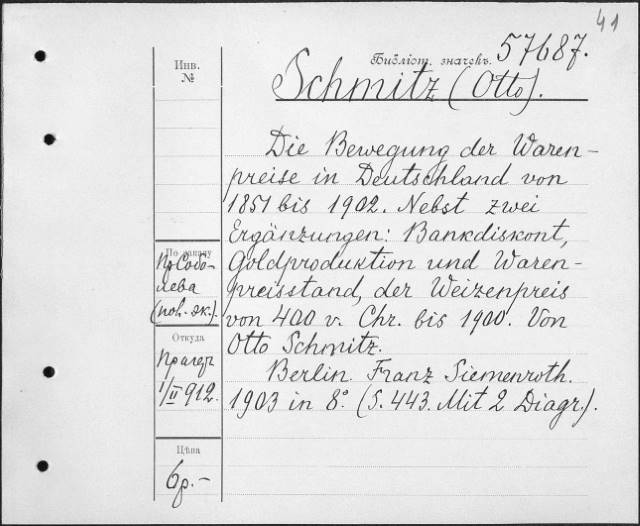 41
Инв.
№
Библіот. значекъ. 57687.
Schmitz (Otto).
Die Bewegung der Waren-
preise in Deutschland von
1851 bis 1902. Nebst zwei
Ergänzungen: Bankdiskont,
Goldproduktion und Waren-
preisstand, der Weizenpreis
von 400 v. Chr. bis 1900. Von
Otto Schmitz.
Berlin. Franz Siemenroth.
1903 in 8° (S. 443. Mit 2 Diagr.).
По заказу
Пр. Собо-
лева
(пол. эк.).
Откуда
Прагеръ
1/II 912.
Цѣна
6 р. -